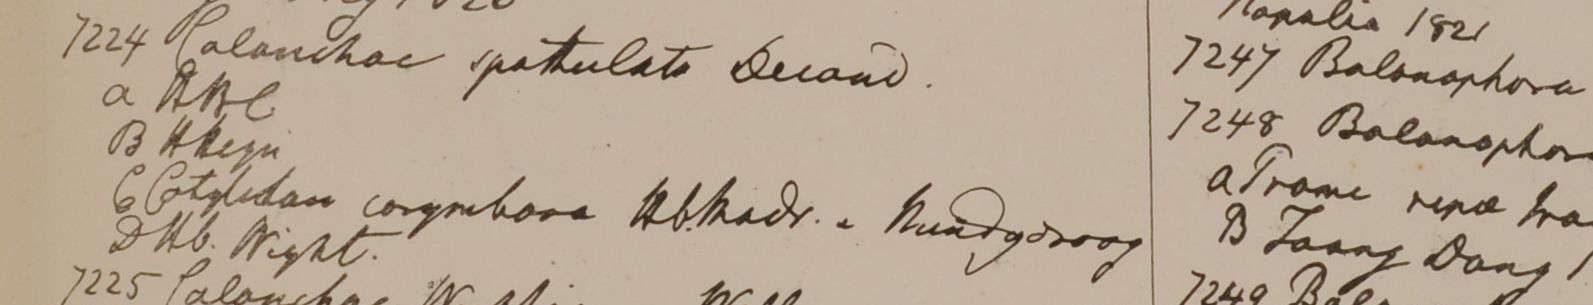 1820
7224 Calanchae spathulata Decand.
a HBC
B H Heyn
C Cotyledon corymbosa Hb. Madr. e Nundydroog
D Hb. Wight.
7225 Calanchae
Napalia 1821
7247 Balanophora
7248 Balanophor
a Trame ripae Ira
B Taong Dong
7249 Bala